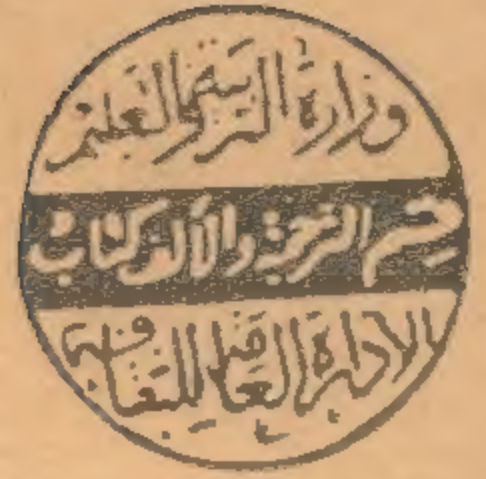 وزارة التربية والتعليم
قسم الترجمة والألف كتاب
الإدارة العامة للثقافة